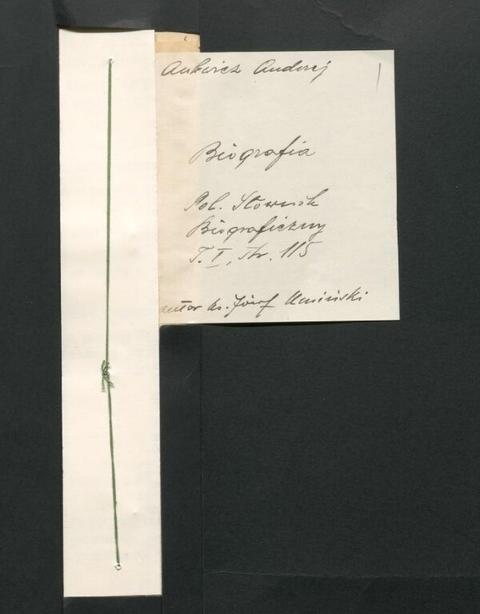 Ankwicz Andrzej
Biografia
Pol. Słownik
Biograficzny
T. I, str. 115
autor ks. Józef Umiński